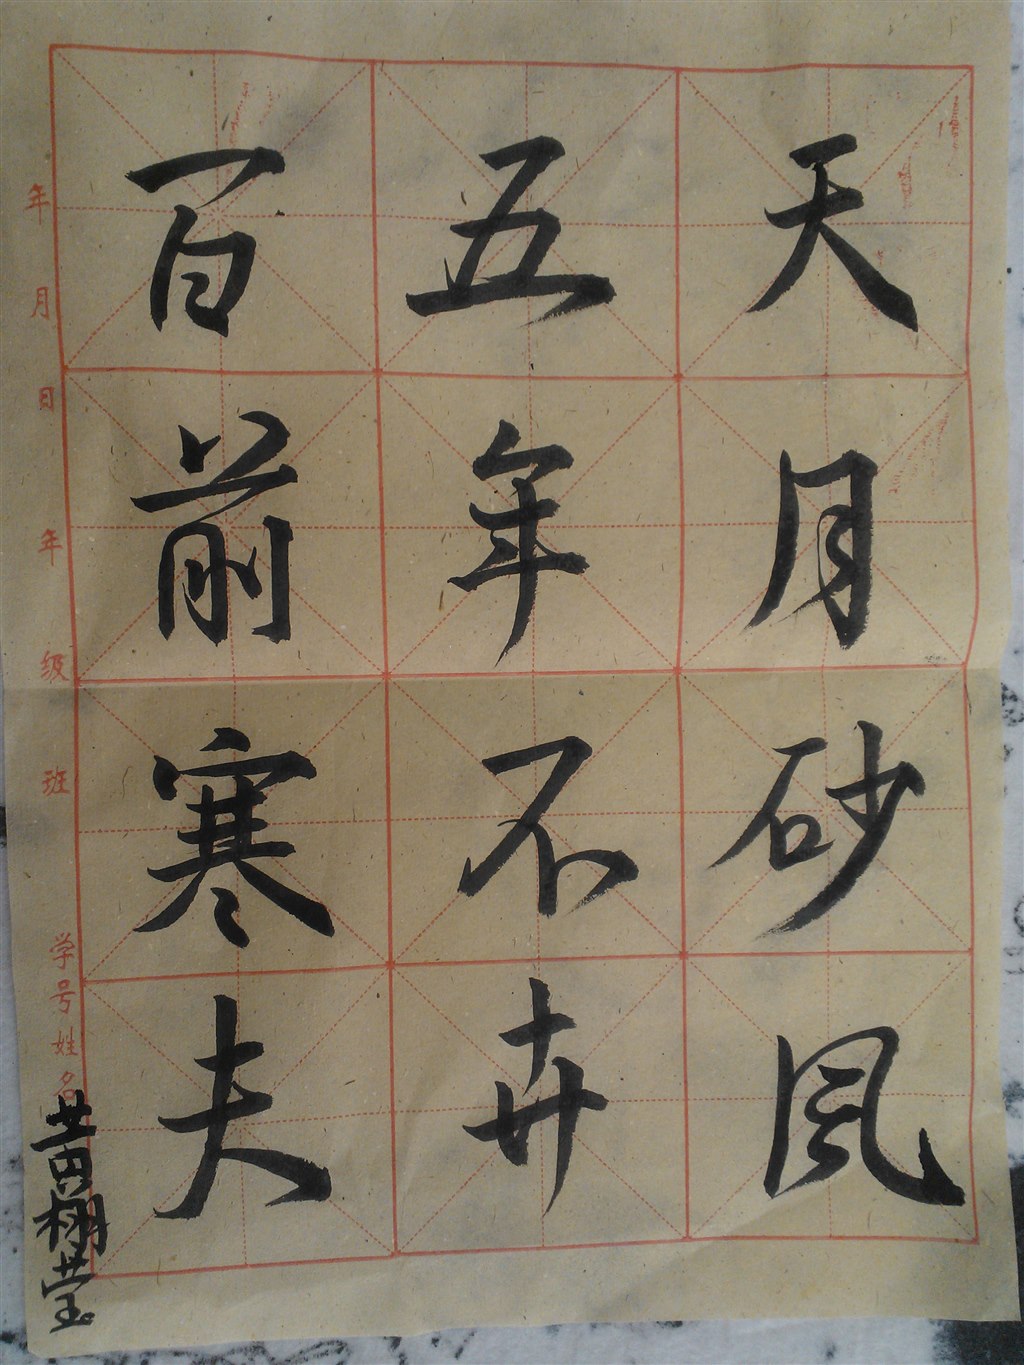 天月砂风
五年不卉
百前寒夫
年月日年级班学号姓名
黄栩莹